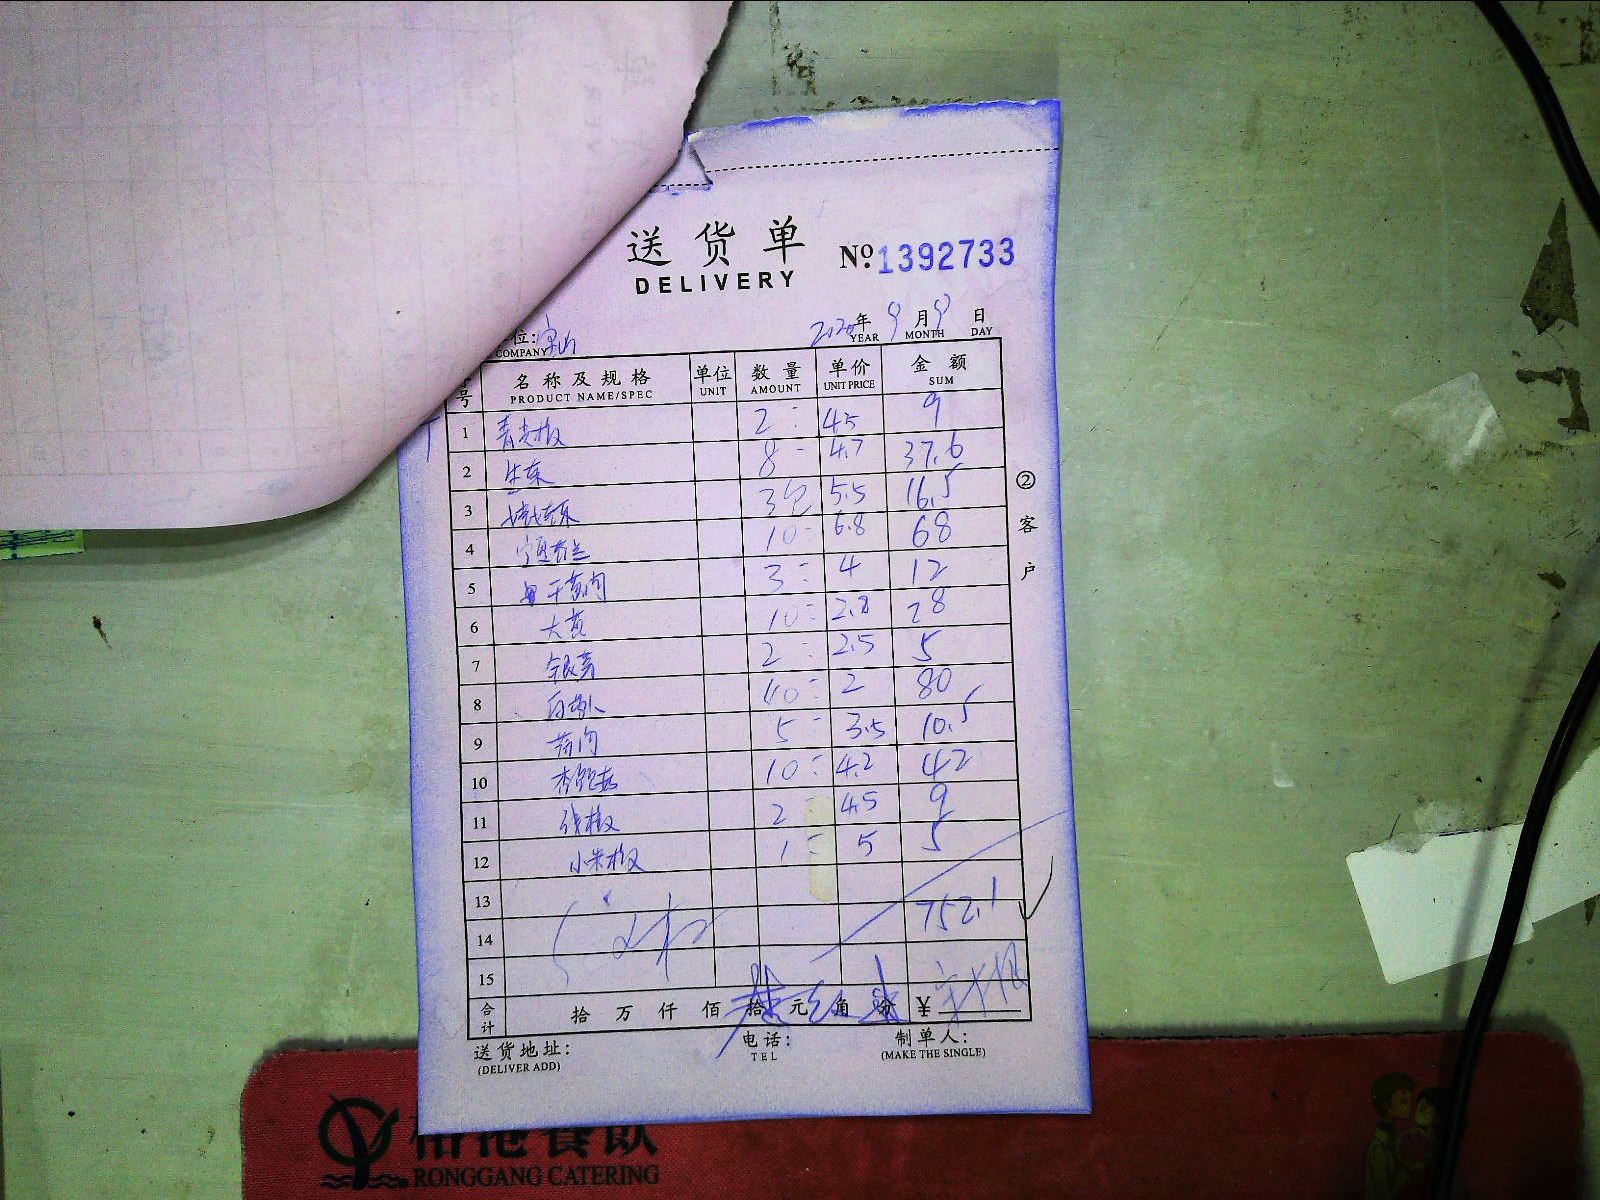 送货单
DELIVERY
№ 1392733
位: 宝山 2020年 9月 9日
COMPANY YEAR MONTH DAY
号 名称及规格 单位 数量 单价 金额
PRODUCT NAME/SPEC UNIT AMOUNT UNIT PRICE SUM
1 青尖椒 2 4.5 9
2 生菜 8 4.7 37.6
3 3包 5.5 16.5
4 10 6.8 68
5 3 4 12
6 大葱 10 2.8 28
7 银芽 2 2.5 5
8 白萝卜 40 2 80
9 5 3.5 10.5
10 杏鲍菇 10 4.2 42
11 线椒 2 4.5 9
12 小米椒 1 5 5
13
14 752.1
15
合计 拾 万 仟 佰 拾 元 角 分 ¥
②客户
送货地址: 电话: 制单人:
(DELIVER ADD) TEL (MAKE THE SINGLE)
餐饮
RONGGANG CATERING